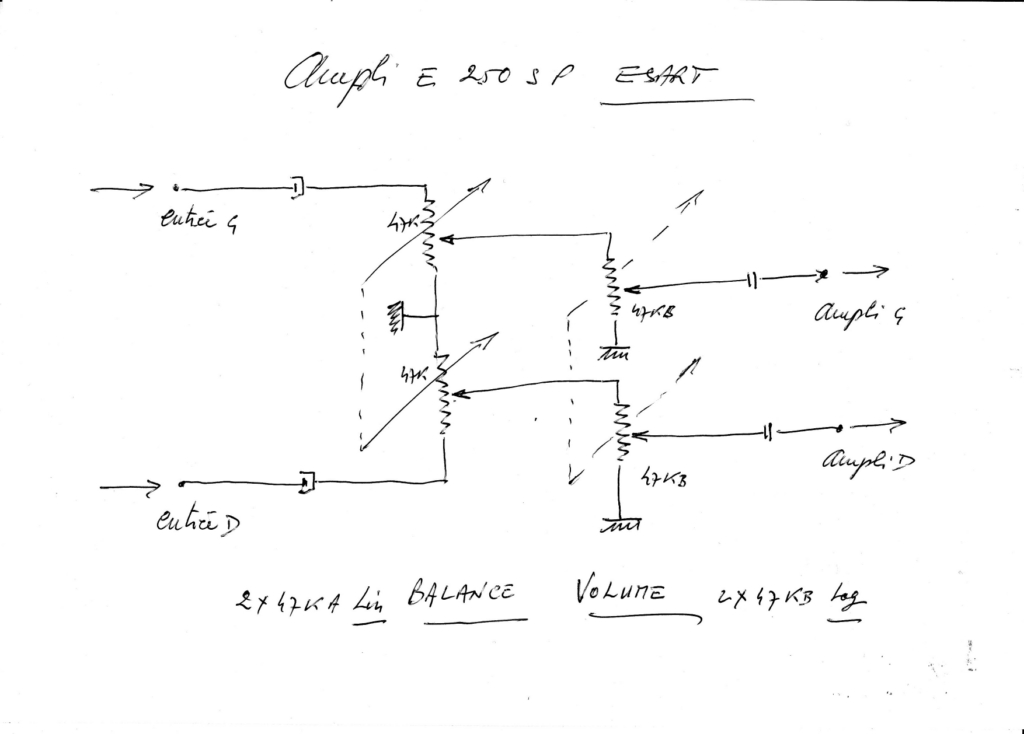 Ampli E 250 SP ESART
entrée G
47K
47KB
Ampli G
47K
47KB
Ampli D
entrée D
2x47KA Lin BALANCE VOLUME 2x47KB Log